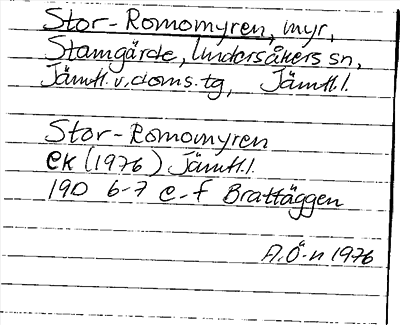 Stor-Romomyren, myr,
Stamgärde, Undersåkers sn,
Jämtl. v. doms. tg, Jämtl. l.
Stor-Romomyren
ek (1976) Jämtl. l.
19D 6-7 e-f Brattäggen
A. Ö-n 1976